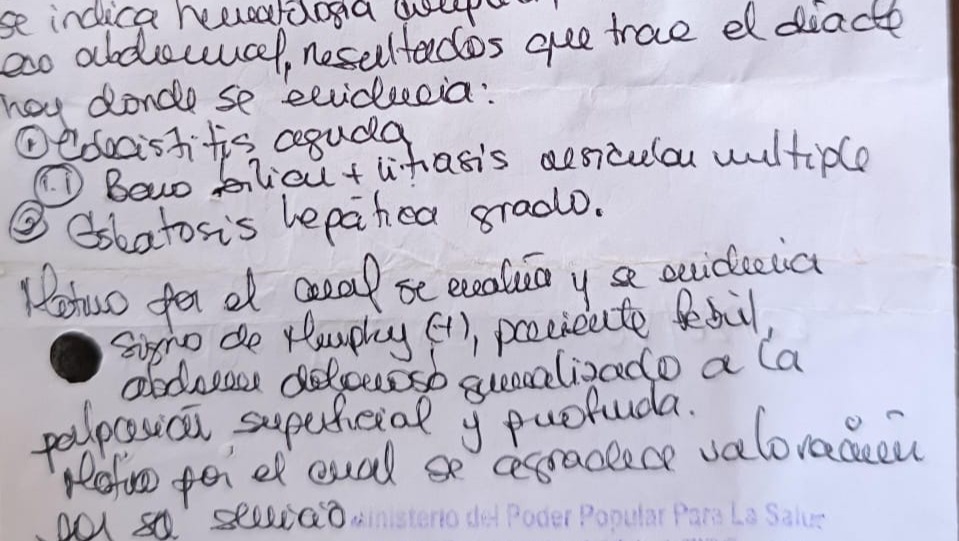 se indica hematología comp
eco abdominal, resultados que trae el día de
hoy donde se evidencia:
① Colecistitis aguda
①.① Barro biliar + litiasis vesicular multiple
② Esteatosis hepática grado.
Motivo por el cual se evalúa y se evidencia
signo de Murphy (+), paciente febril,
abdomen doloroso generalizado a la
palpación superficial y profunda.
Motivo por el cual se agradece valoración
por su servicio
Ministerio del Poder Popular Para La Salud